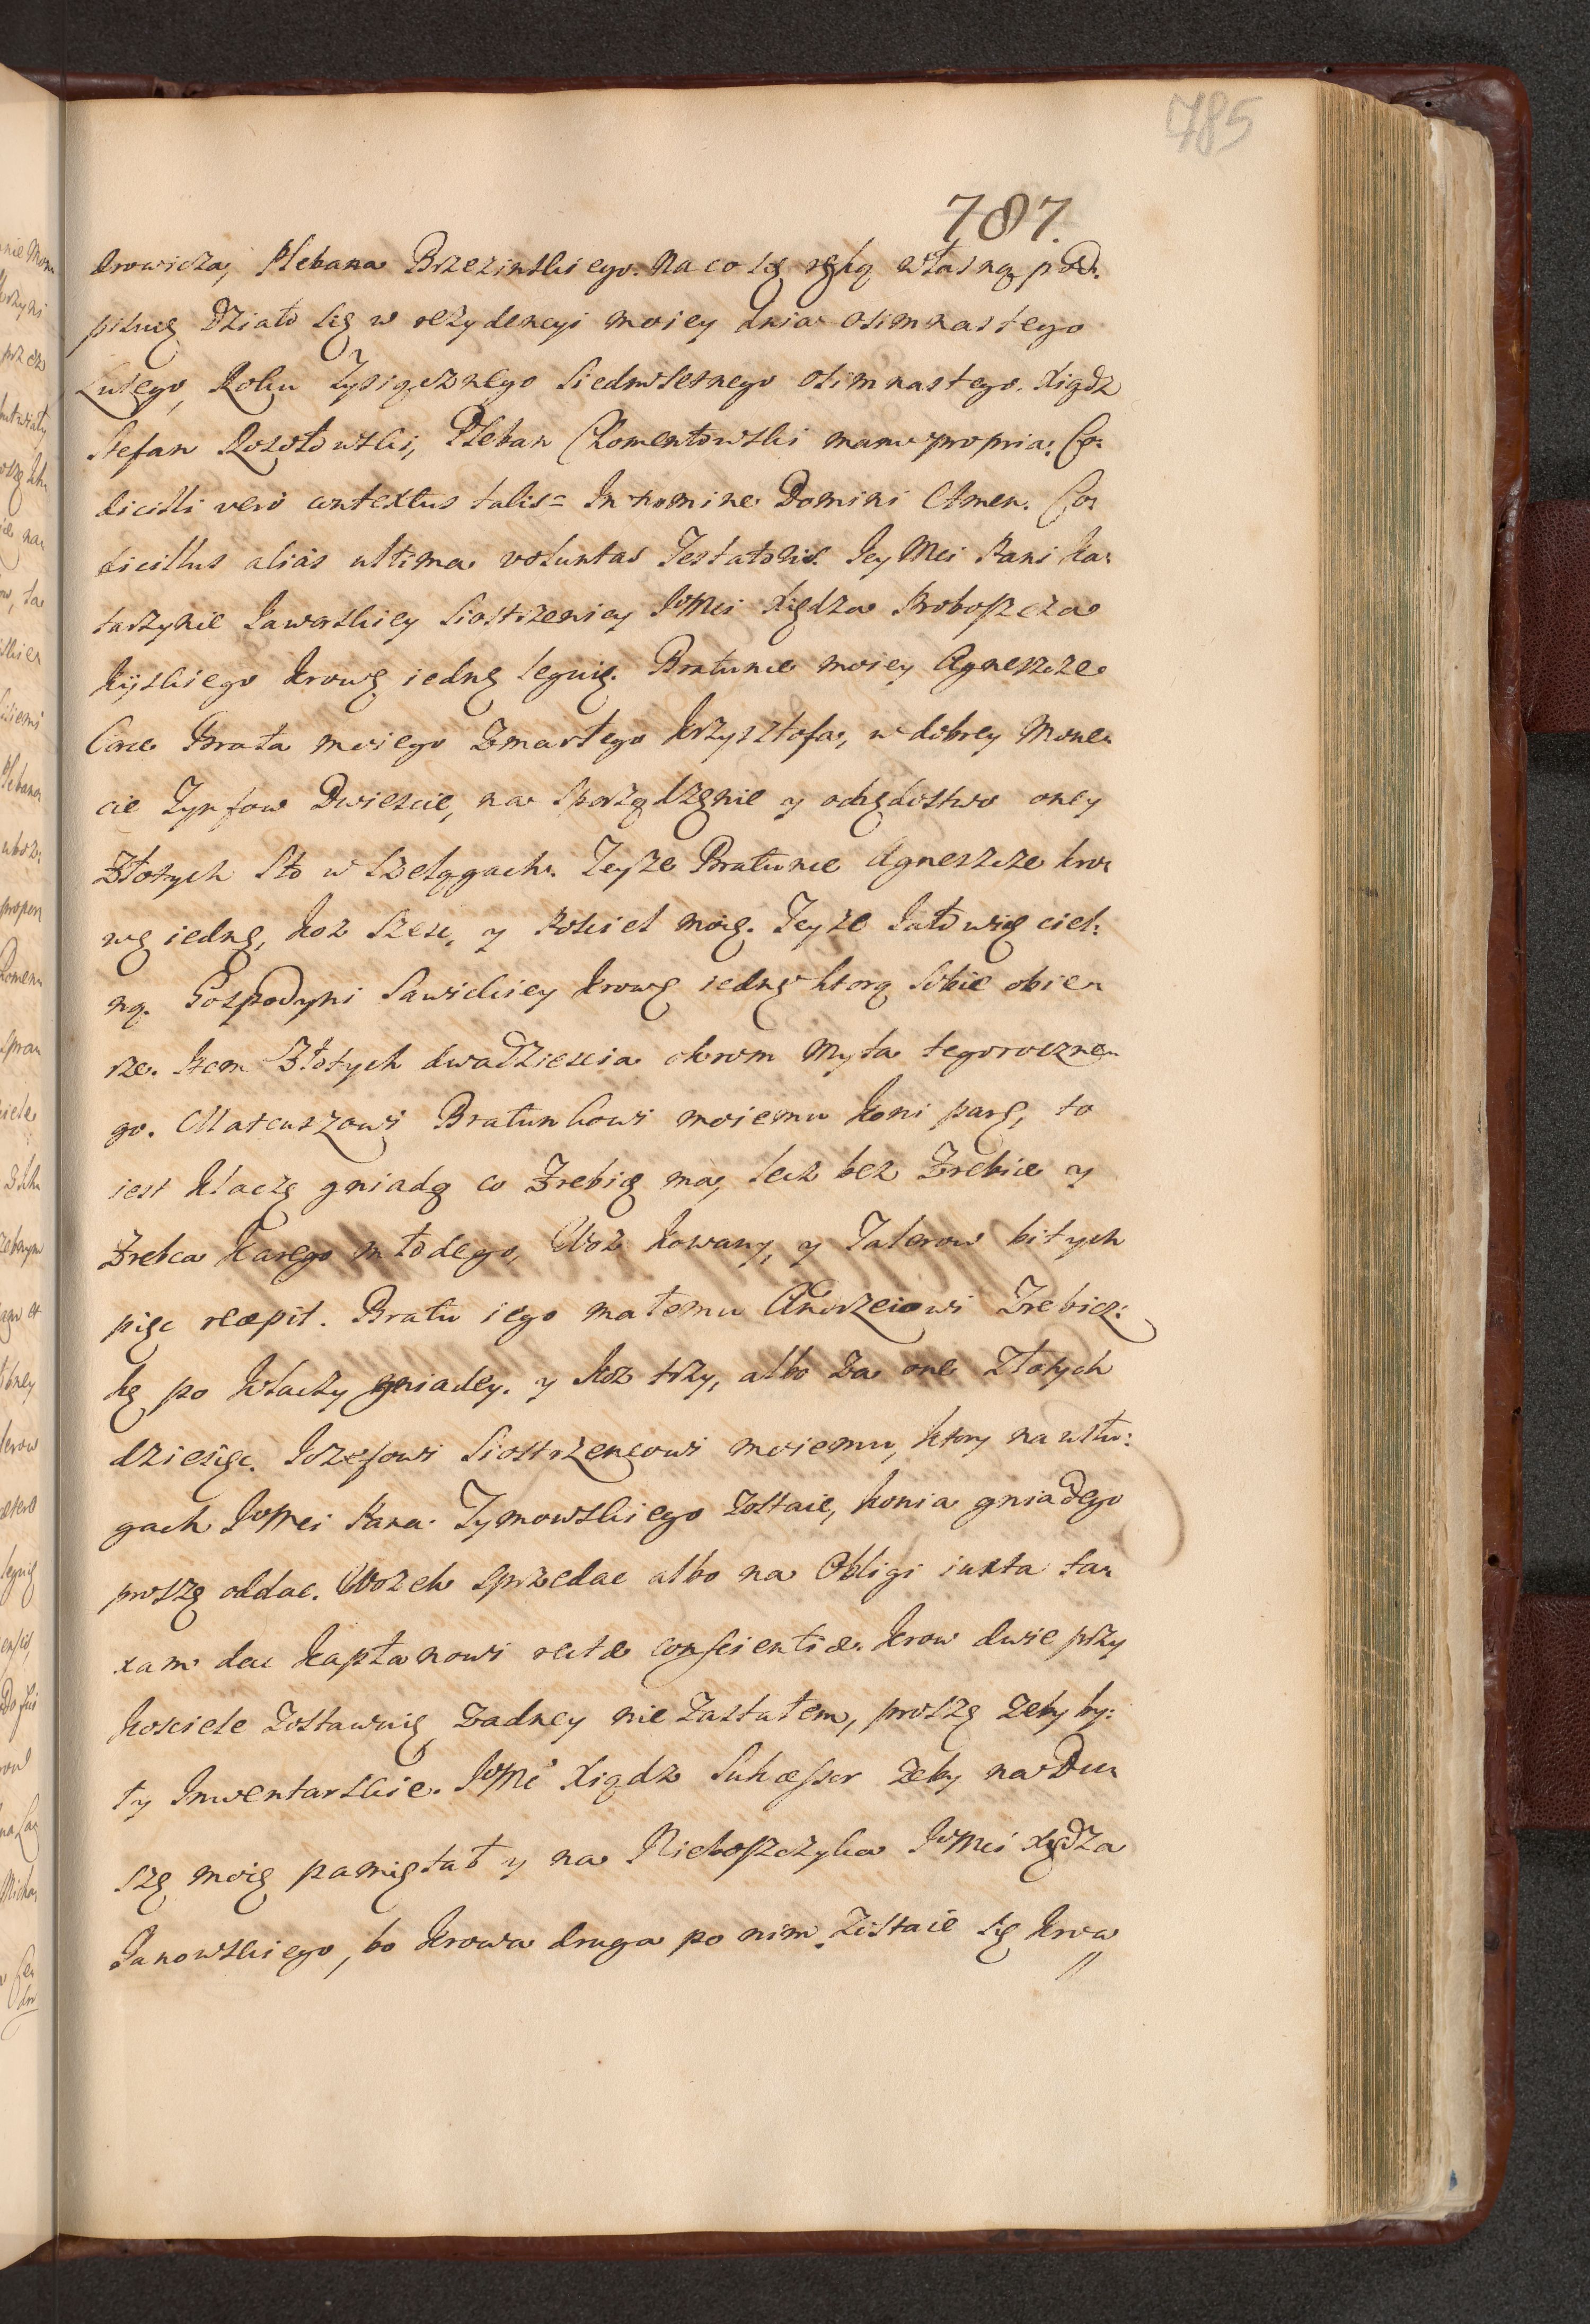 785
787.
krowicza, Plebana Brzezinskiego. Na co się ręką własną pod:
pisuię Działo się w rezydencyi moiey dnia osimnastego
Lutego, Roku Tysiącznego Siedmsetnego osimnastego. Xiądz
Stefan Rosołowski, Pleban Chomentowski manu propria: Co:
dicilli vero contextus talis = In nomine Domini Amen. Co:
dicillus alias ultima voluntas Testatoris. Jey Mci Pani Ka:
tarzynie Jaworskiey Siostrzenicy JoMci Xiędza Proboszcza
Kijskiego krowę iednę leguię. Bratunce moiey Agneszce
Corce Brata moiego zmarłego Krzysztofa, w dobrey Mone:
cie Tynfow Dwiescie, na sporządzenie y ochędostwo oney
Złotych Sto w Szelągach. Teysze Bratunce Agneszce kro:
wę iednę, koz szesc, y Posciel moię. Teyze Jałowię ciel:
ną. Gospodyni Sawickiey krowę iednę ktorą sobie obie:
rze. Item Złotych dwadziescia okrom Myta tegoroczne:
go. Mateuszowi Bratunkowi moiemu koni parę, to
iest klaczę gniadą co Zrebię ma, lecz bez Zrebięcia y
Zrebca karego młodego, Woz kowany, y Talerow bitych
pięc recepit. Bratu iego małemu Andrzeiowi Zrebicz:
kę po klaczy gniadey. y koz trzy, albo za one Złotych
dziesięc. Jozefowi Siostrzencowi moiemu, ktory na usłu:
gach JoMci Pana Tymowskiego zostaie, konia gniadego
proszę oddac. Wozek sprzedac albo na Obligi iuxta ta:
xam dac kapłanowi rectae conscientiae. Krow dwie przy
kosciele zostawuię zadney nie zastałem, proszę zeby by:
ły Inwentarskie. JoMć Xiądz Sukcessor zeby na Du:
szę moię pamiętał y na Nieboszczyka JoMci Xiędza
Janowskiego, bo krowa druga po nim zostaie się krwa